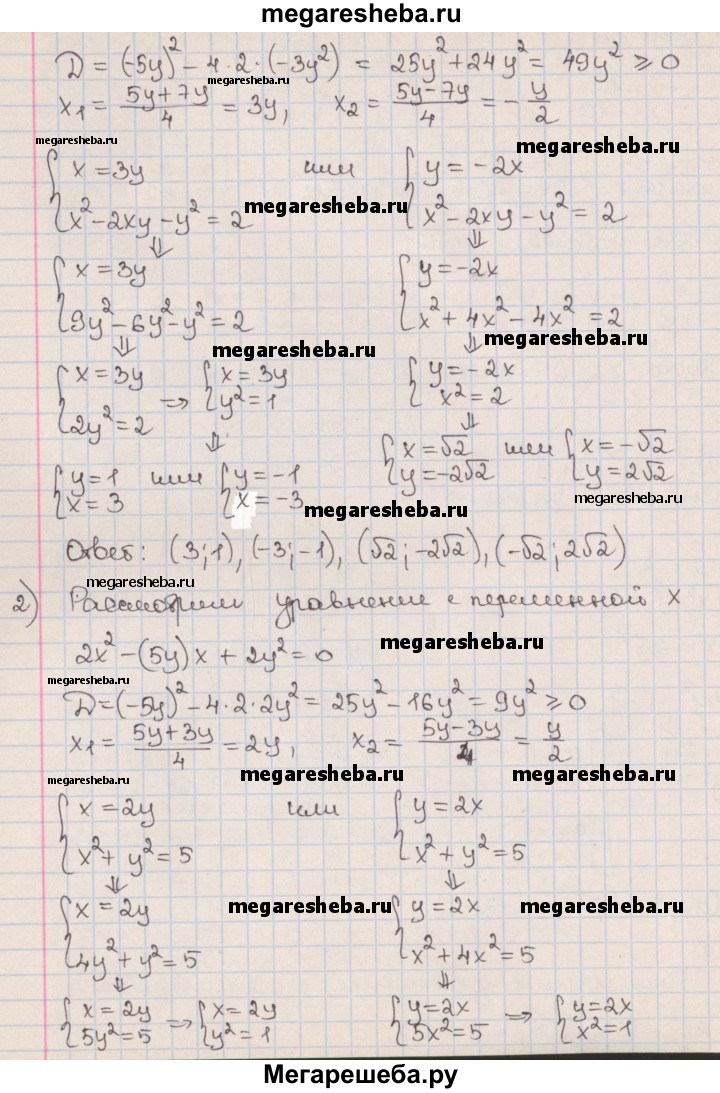 megaresheba.ru
D = (-5y)² - 4·2·(-3y²) = 25y² + 24y² = 49y² ⩾ 0
megaresheba.ru
x₁ = (5y+7y)/4 = 3y, x₂ = (5y-7y)/4 = -y/2
megaresheba.ru megaresheba.ru
{ x = 3y или { y = -2x
x² - 2xy - y² = 2 megaresheba.ru x² - 2xy - y² = 2
⇓ ⇓
{ x = 3y { y = -2x
9y² - 6y² - y² = 2 x² + 4x² - 4x² = 2
⇓ megaresheba.ru ⇓ megaresheba.ru
{ x = 3y ⇒ { x = 3y { y = -2x
2y² = 2 y² = 1 x² = 2
⇓ ⇓
{ x = √2 или { x = -√2
y = -2√2 y = 2√2
{ y = 1 или { y = -1 megaresheba.ru
x = 3 x = -3 megaresheba.ru
Ответ: (3;1), (-3;-1), (√2; -2√2), (-√2; 2√2)
megaresheba.ru
2) Рассмотрим уравнение с переменной x
2x² - (5y)x + 2y² = 0 megaresheba.ru
megaresheba.ru
D = (-5y)² - 4·2·2y² = 25y² - 16y² = 9y² ⩾ 0
x₁ = (5y+3y)/4 = 2y, x₂ = (5y-3y)/4 = y/2
megaresheba.ru megaresheba.ru megaresheba.ru
{ x = 2y или { y = 2x
x² + y² = 5 x² + y² = 5
⇓ ⇓
{ x = 2y megaresheba.ru { y = 2x megaresheba.ru
4y² + y² = 5 x² + 4x² = 5
⇓ ⇓
{ x = 2y ⇒ { x = 2y { y = 2x ⇒ { y = 2x
5y² = 5 y² = 1 5x² = 5 x² = 1
Мегарешеба.ру